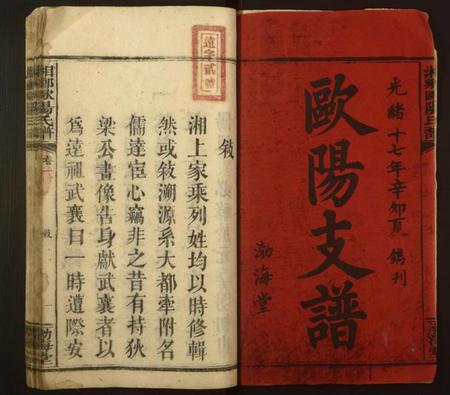 光緒十七年辛卯夏鐫刊
歐陽支譜
渤海堂
遠字貳號
敘
湘上家乘列姓均以時修輯
然或敘溯源系大都牽附名
儒達宦心竊非之昔有持狄
梁公畫像告身獻武襄者以
為達祖武襄曰一時遭際安
湘鄉歐陽氏譜
卷一
敘
一
渤海堂